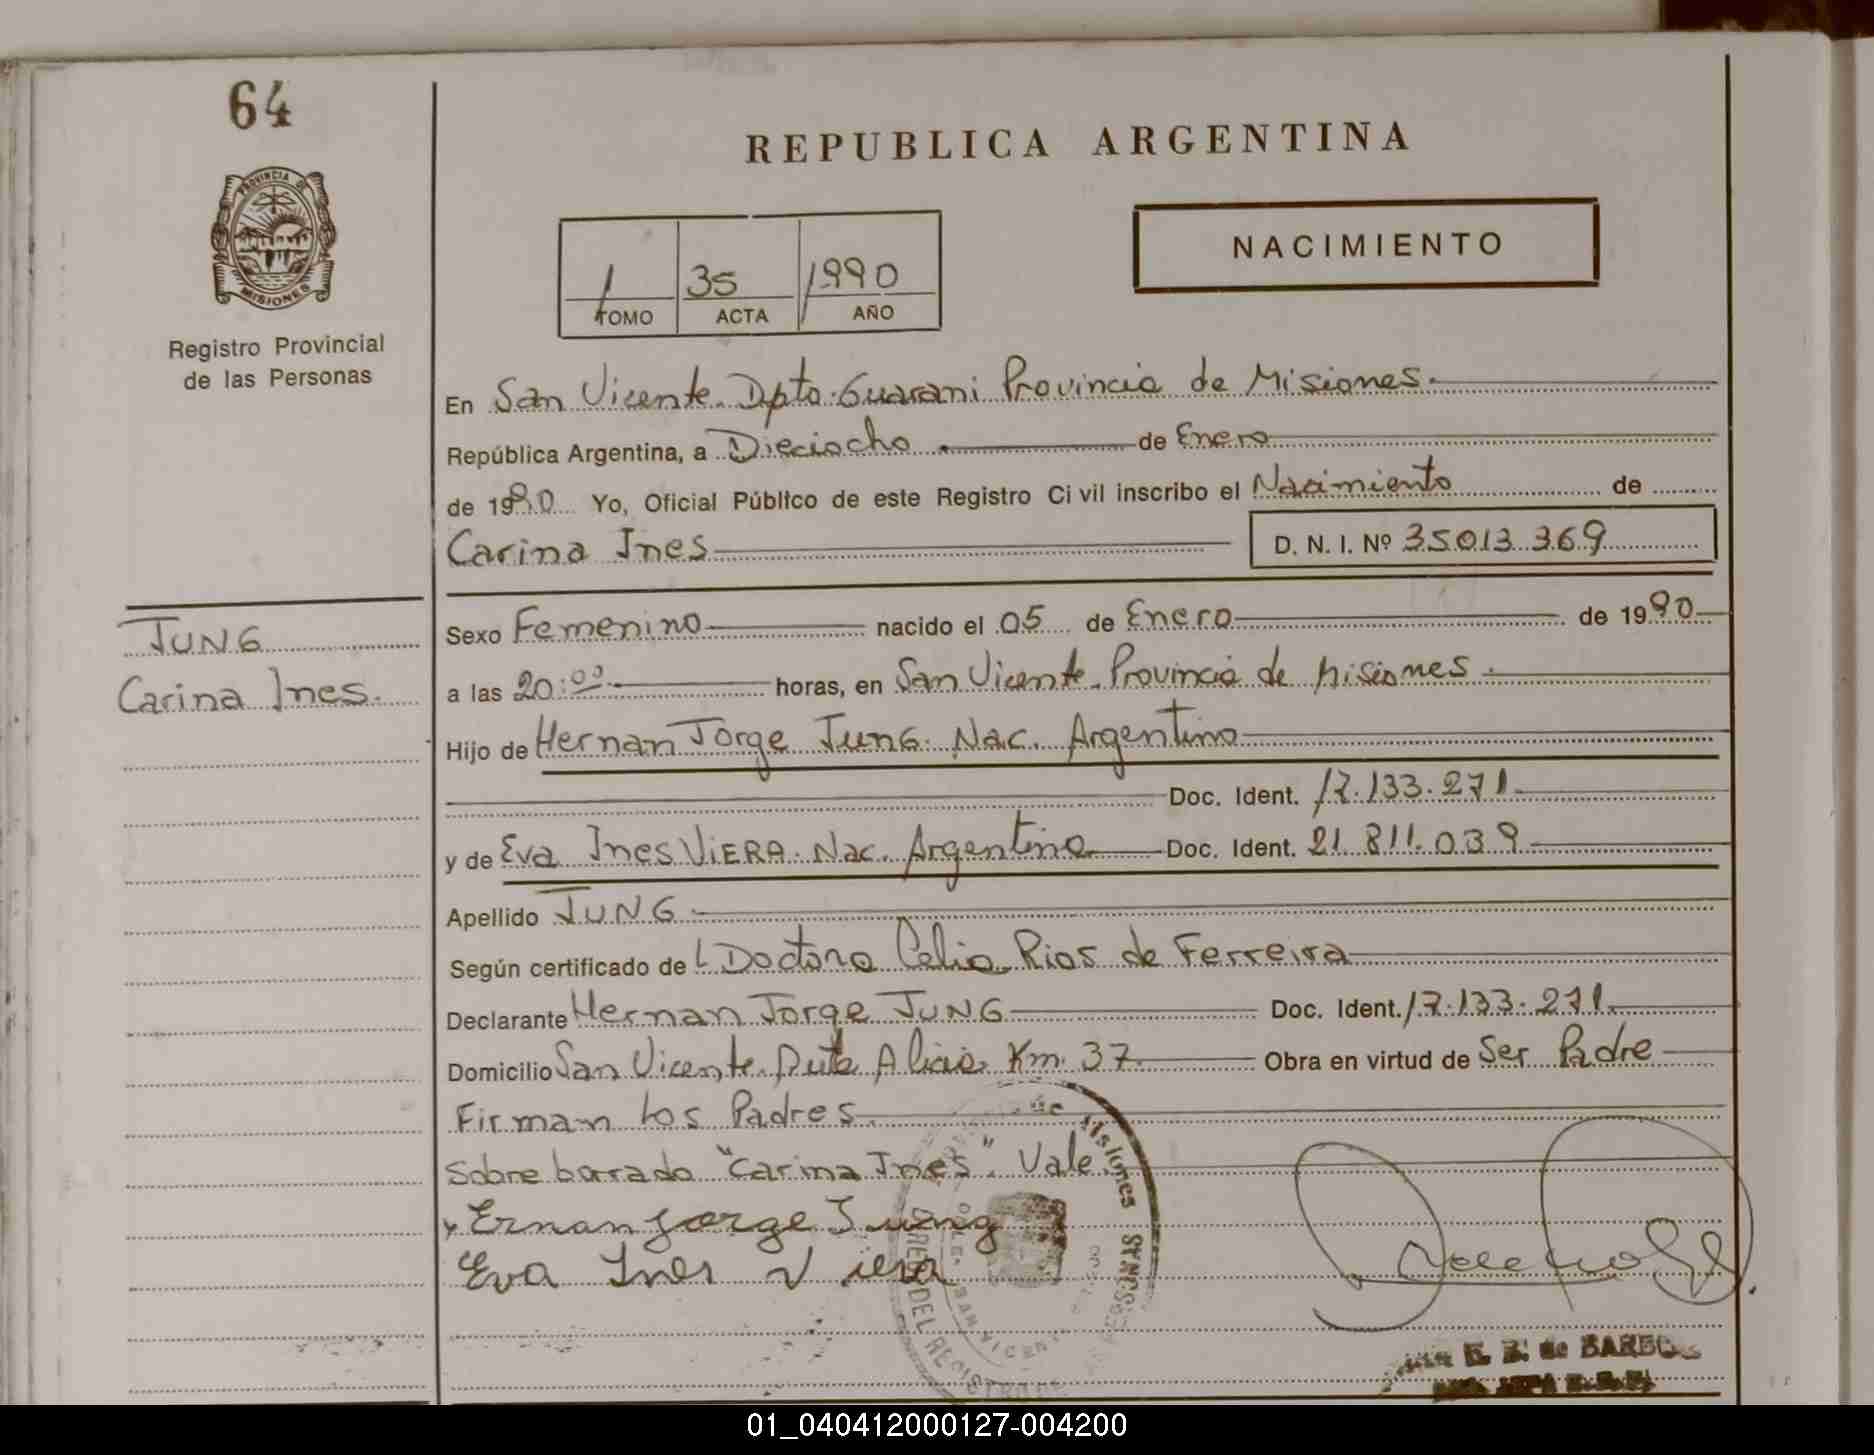 64
REPUBLICA ARGENTINA
PROVINCIA DE
MISIONES
Registro Provincial
de las Personas
NACIMIENTO
1 35 1990
TOMO ACTA AÑO
En San Vicente. Dpto. Guarani Provincia de Misiones.
República Argentina, a Dieciocho de Enero
de 1990 Yo, Oficial Público de este Registro Civil inscribo el Nacimiento de
Carina Ines D. N. I. Nº 35013369
JUNG
Carina Ines.
Sexo Femenino nacido el 05 de Enero de 1990
a las 20:00 horas, en San Vicente. Provincia de Misiones.
Hijo de Hernan Jorge Jung. Nac. Argentino
Doc. Ident. 17.133.271
y de Eva Ines VIERA. Nac. Argentina Doc. Ident. 21.811.039
Apellido JUNG
Según certificado de Doctora Celia Rios de Ferreira
Declarante Hernan Jorge JUNG Doc. Ident. 17.133.271
Domicilio San Vicente. Ruta Alicia Km. 37 Obra en virtud de Ser Padre
Firman los Padres.
Sobre borrado "Carina Ines". Vale
Ernan Jorge Jung
Eva Ines Viera
de Misiones
DEL REGISTRO DE
SAN VICENTE
de BARBO
01_040412000127-004200